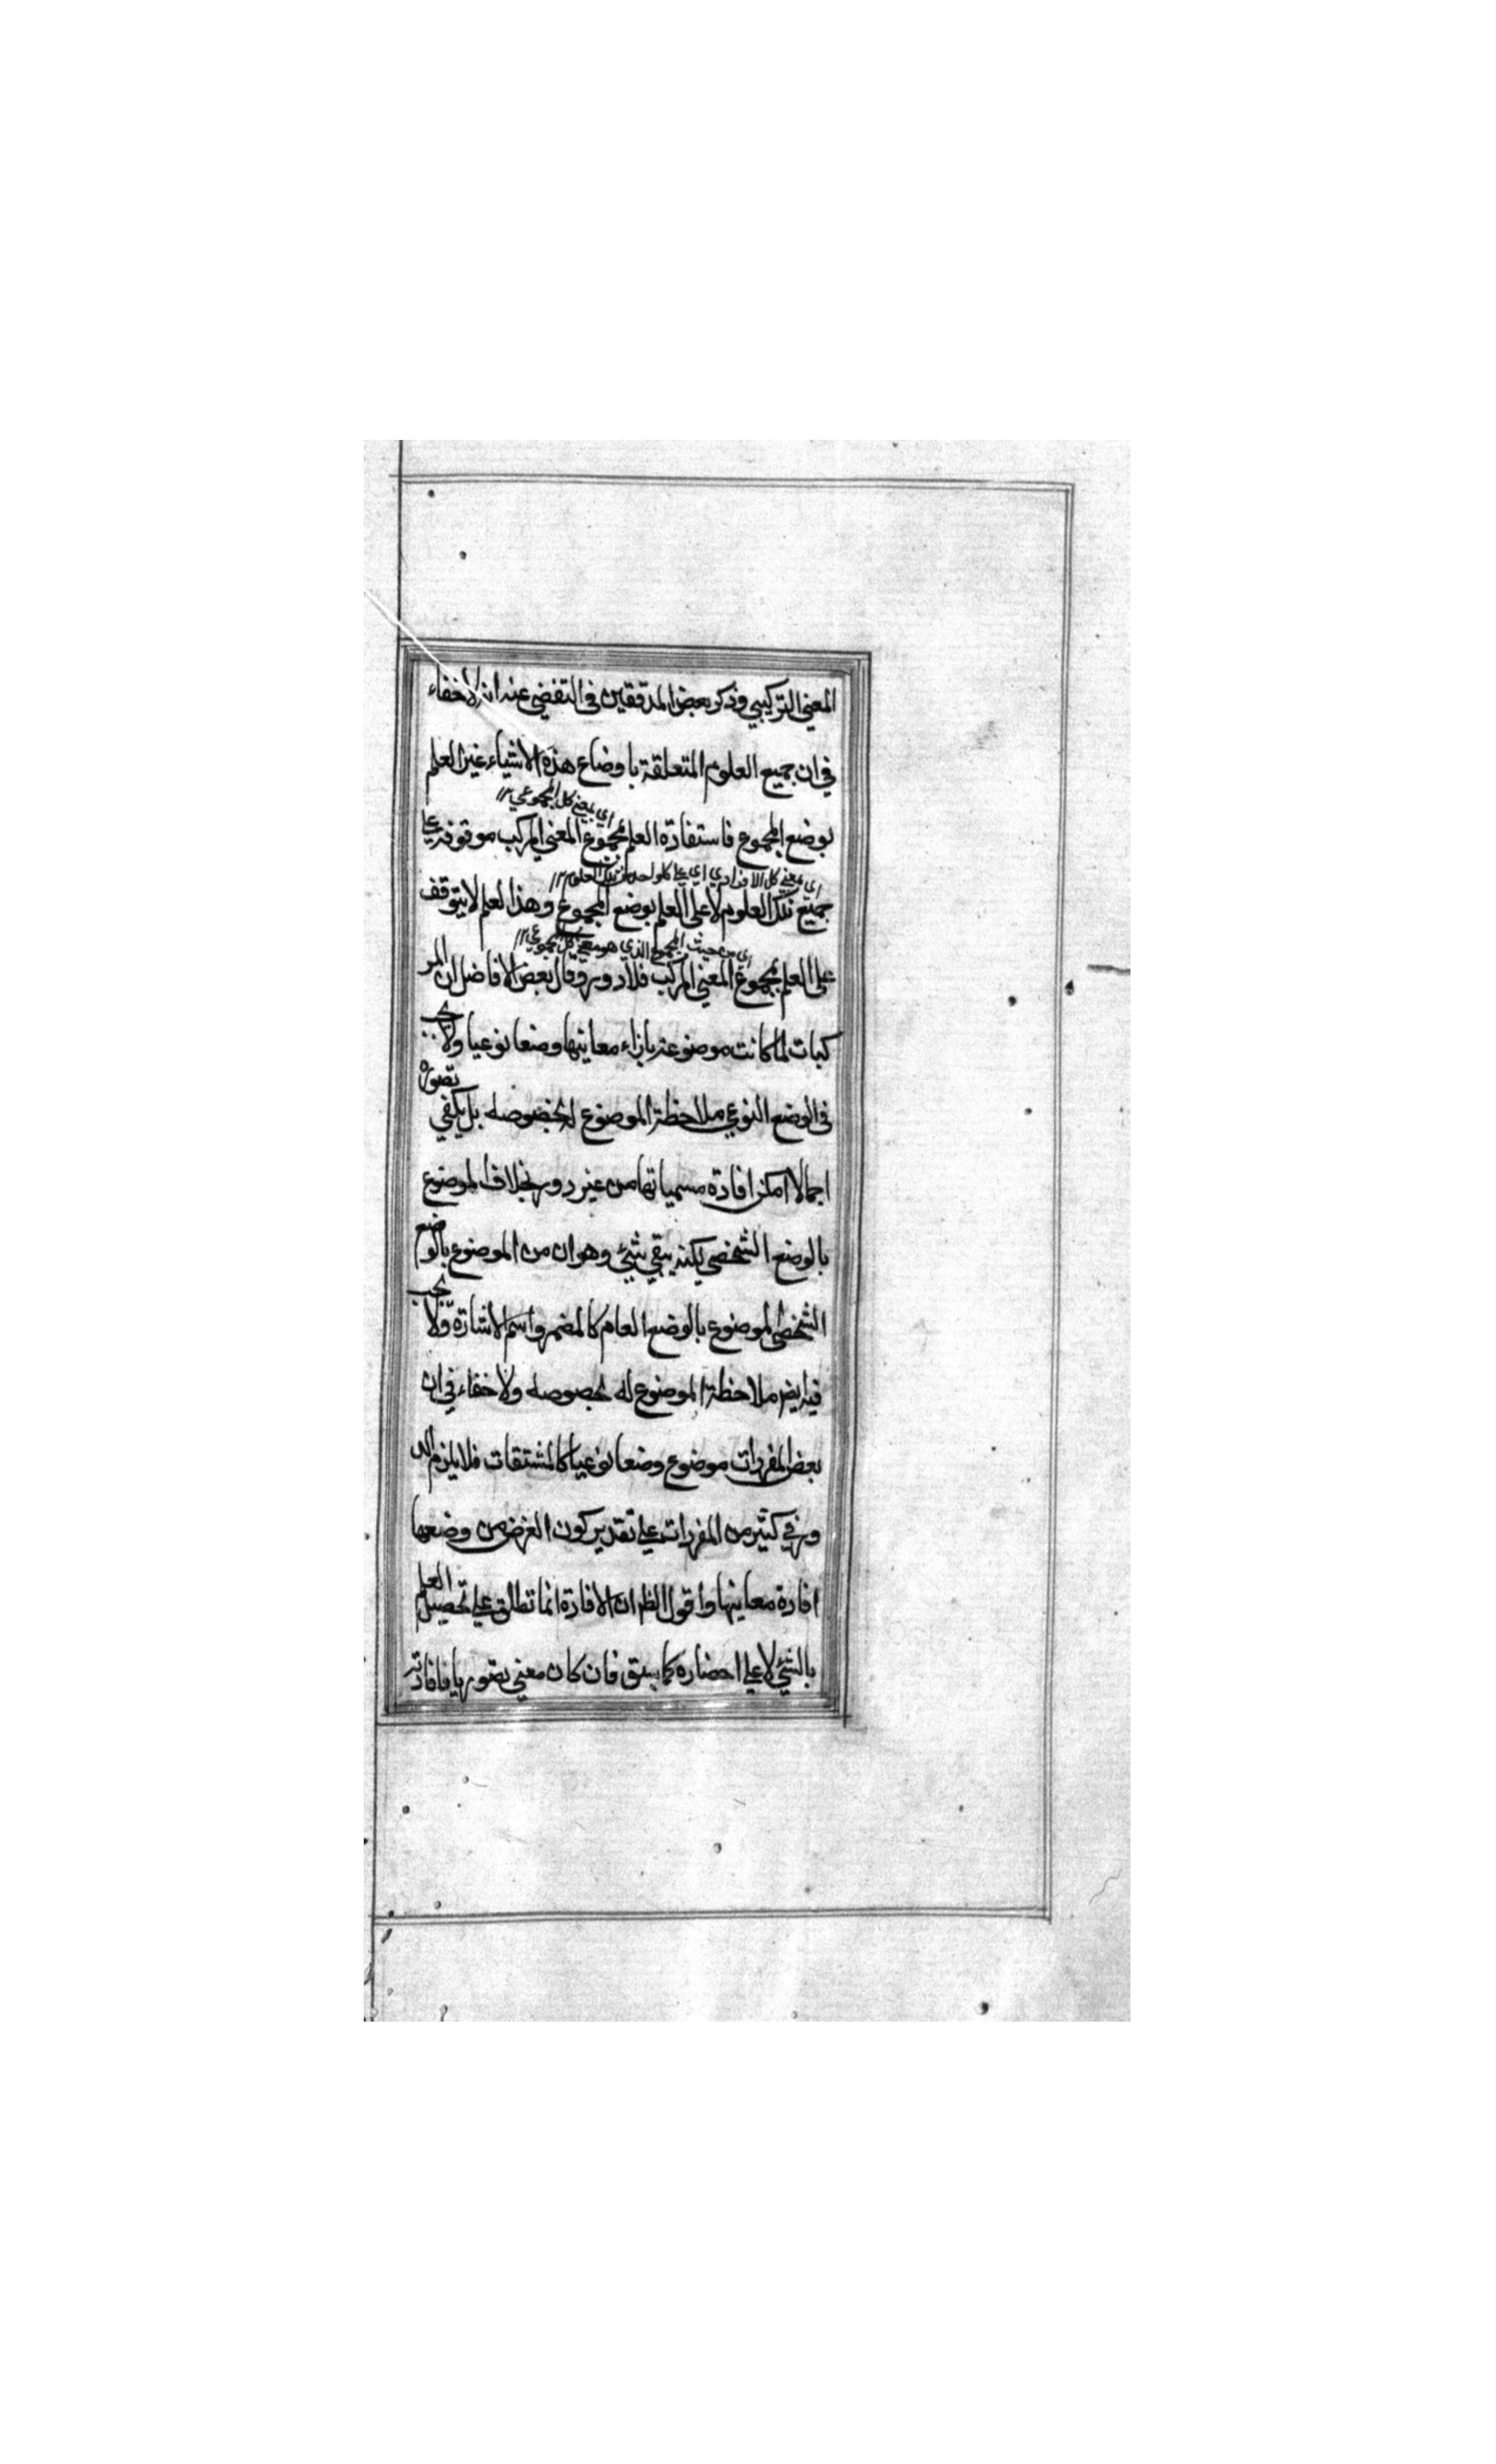 المعني التركيبي وذكر بعض المدققين في التفضي عنه انه لاخفاء
في ان جميع العلوم المتعلقة باوضاع هذه الاشياء غير العلم
اي بمعني كل المجموعي ١٢
بوضع المجموع فاستفادة العلم بمجموع المعني المركب موقوفة علي
اي بمعني كل الافرادي اي علي كل واحد من تلك العلوم ١٢
جميع تلك العلوم لا علي العلم بوضع المجموع وهذا لعلم لا يتوقف
اي من حيث المجموع الذي هو بمعني كل مجموعي ١٢
علي العلم بمجموع المعني المركب فلا دور وقال بعض الافاضل ان المر
كبات لما كانت موضوعة بازاء معانيها وضعا نوعيا ولا يجب
في الوضع النوعي ملاحظة الموضوع له بخصوصه بل يكفي تصوره
اجمالا امكن افادة مسمياتها من غير دور بخلاف الموضوع
بالوضع الشخصي لكنه يبقي شئي وهو ان من الموضوع بالوضع
الشخصي الموضوع بالوضع العام كالمضمر واسم الاشارة ولا يجب
فيه ايضر ملاحظة الموضوع له بخصوصه ولا خفاء في ان
بعض المفردات موضوع وضعا نوعيا كالمشتقات فلا يلزم الد
ور في كثير من المفردات علي تقدير كون الغرض من وضعها
افادة معانيها واقول الظر ان الافادة انما تطلق علي تحصيل العلم
بالشئي لا علي احضاره كما سبق فان كان معني تصوريا فافادته